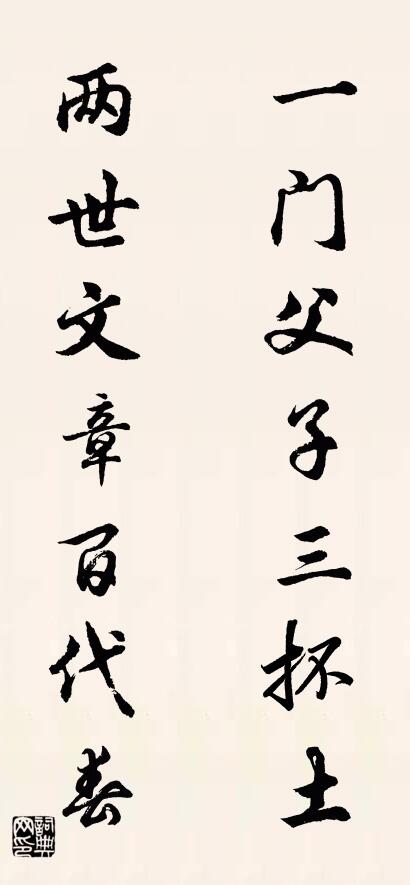 一门父子三抔土
两世文章百代春
詞典网印